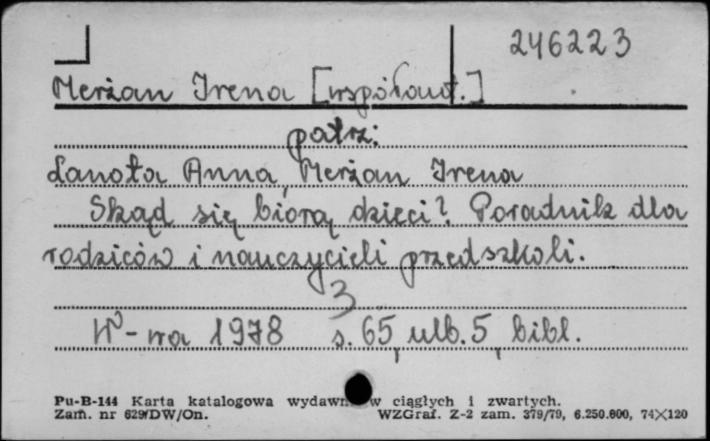 246223
Merżan Irena [współaut.]
patrz:
Lanota Anna, Merżan Irena
Skąd się biorą dzieci? Poradnik dla
rodziców i nauczycieli przedszkoli.
3
W-wa 1978 s. 65, ulb. 5, bibl.
Pu-B-144 Karta katalogowa wydawn w ciągłych i zwartych.
Zam. nr 629/DW/On. WZGraf. Z-2 zam. 379/79, 6.250.000, 74×120